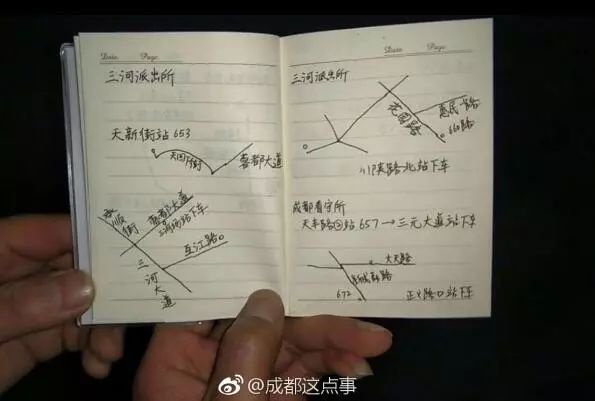 Date. Page.
三河派出所
天新街站 653
天回街
蓉都大道
顺街
蓉都大道
站下车
互江路
三河大道
Date. Page.
三河派出所
花园路
惠民路
660路
川陕路北站下车
成都看守所
天丰路站 657→三元大道站下车
大天路
672
正义路口站下车
@成都这点事